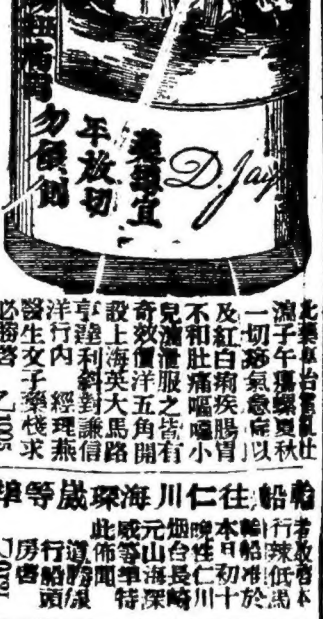 藥線宜
平放切
勿傾側
D. Jay
此藥專治霍亂吐
瀉子午痧螺夏秋
一切痧氣急症以
及紅白痢疾腸胃
不和肚痛嘔噁小
兒瀉泄服之皆有
奇效價洋五角開
設上海英大馬路
亨達利斜對謙信
洋行內 經理燕
醫生女子藥棧求
必勝啓 乙1005
輪船往仁川海琛崴等埠
行辣低馬
輪船准於
本月初十
晚往仁川
烟台長崎
元山海深
崴等埠特
此佈聞
道勝銀
行船頭
房啓